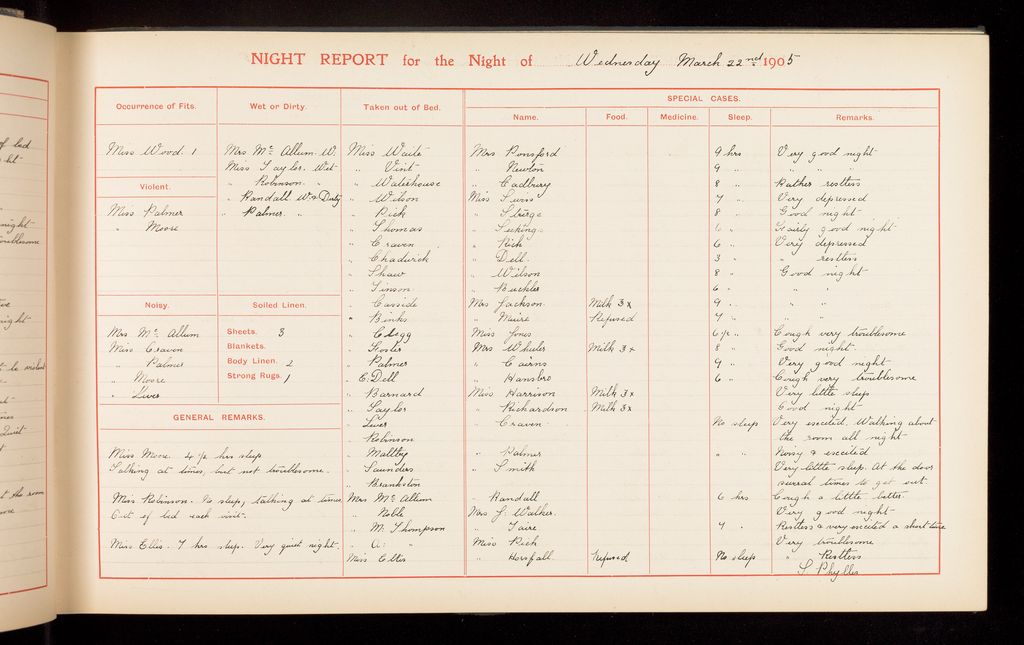 NIGHT REPORT for the Night of Wednesday March 22nd 1905
Occurrence of Fits.
Miss Wood. 1
Violent.
Miss Palmer
" Moore
Noisy.
Mrs Mc Allum
Miss Craven
" Palmer
" Moore
" Liver
Wet or Dirty.
Mrs Mc Allum. W.
Miss Taylor. Wet
" Robinson. "
" Randall. W & Dirty
" Palmer. "
Soiled Linen.
Sheets. 3
Blankets.
Body Linen. 2
Strong Rugs. 1
GENERAL REMARKS.
Miss Moore. 4½ hrs sleep.
Talking at times, but not troublesome.
Miss Robinson. No sleep, talking at times
Out of bed each visit.
Miss Ellis. 7 hrs sleep. Very quiet night.
Taken out of Bed.
Miss Waite
" Visit
" Waterhouse
" Wilson
" Rick
" Thomas
" Craven
" Chadwick
" Shaw
" Simson
" Casside
" Binks
" Clegg
" Foster
" Palmer
" E. Dell
" Barnard
" Taylor
" Liver
" Robinson
" Maltby
" Saunders
" Brankston
Mrs Mc Allum
" Noble
" M. Thompson
" A: "
Miss Ellis
SPECIAL CASES.
Name. Food. Medicine. Sleep. Remarks.
Mrs Ponsford 9 hrs Very good night
" Newton 9 " " " "
" Cadbury 8 " Rather restless
Miss 7 " Very depressed
" Sturge 8 " Good night
" Seekings 6 " Fairly good night
" Rich 6 " Very depressed
" Dell. 3 " " restless
" Wilson 8 " Good night
" Buckler 6 " " "
Mrs Jackson Milk 3x 9 " " "
" Muire Refused 7 " " "
Miss Jones 6½ " Cough very troublesome
Mrs Wheeler Milk 3x 8 " Good night
" Cairns 9 " Very good night
" Hansbro 6 " Cough very troublesome
Miss Harrison Milk 3x Very little sleep
" Richardson Milk 3x Good night
" Craven No sleep Very excited. Walking about
the room all night
" Palmer " " Noisy & excited
" Smith Very little sleep. At the door
several times to get out.
" Randall 6 hrs Cough a little better.
Mrs J. Walker. Very good night
" Taire 7 " Restless & very excited a short time
Miss Rich Very troublesome
" Horsfall Refused No sleep " Restless
S Phyllis